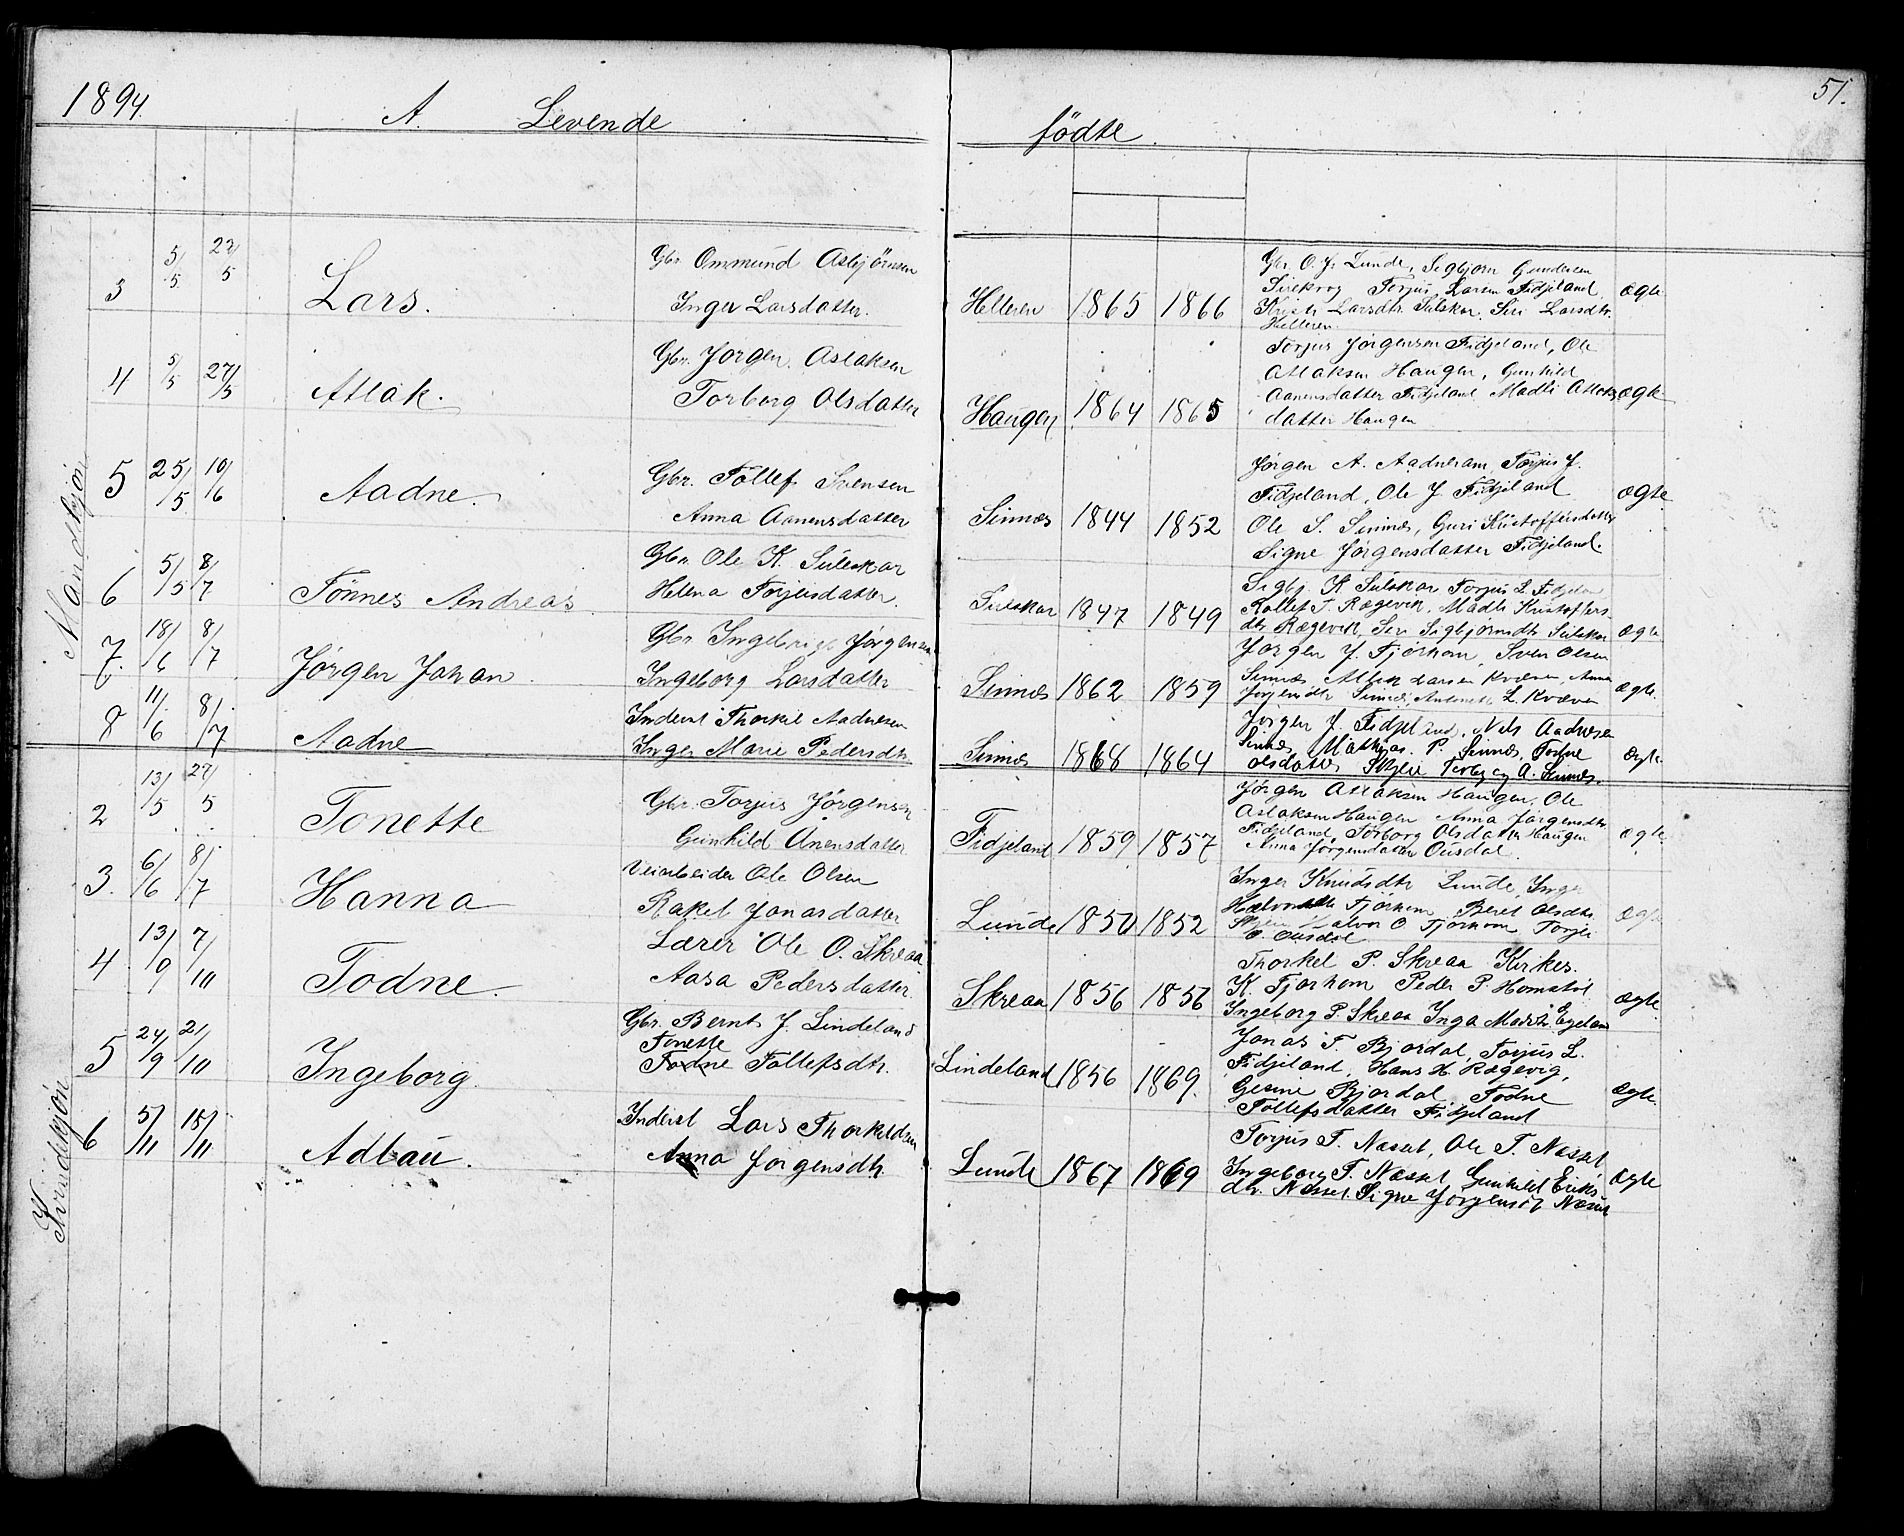 1894.
A. Levende
fødte.
51.
Mandkjøn
3 5/5 27/5 Lars.
Gbr. Ommund Asbjörnsen
Inger Larsdatter.
Helleren 1865 1866
Gbr. O. J. Lunde, Sigbjørn Gundersen
Sirekrog Torjus Larsen Fidjeland
Larsdtr. Sulskar, Siri Larsdtr.
Helleren.
ægte
4 5/5 27/5 Atlak.
Gbr. Jørgen Aslaksen
Torborg Olsdatter
Haugen 1864 1865
Torjus Jørgensen Fidjeland, Ole
Atlaksen Haugen, Gunhild
Aanensdatter Fidjeland, Madli Atlaks
datter Haugen
ægte
5 25/5 10/6 Aadne.
Gbr. Tollef Svensen
Anna Aanensdatter
Sinnes 1844 1852
Jørgen A. Aadneram, Torjus J.
Fidjeland, Ole J. Fidjeland
Ole S. Sinnes, Guri Kristoffersdatter
Signe Jørgensdatter Fidjeland.
ægte
6 5/5 8/7 Tønnes Andreas.
Gbr. Ole K. Suleskar
Helena Torjusdatter.
Sulskar 1847 1849
Sigbj. K Sulskar Torjus L. Fidjeland
Rollef T. Rægevik, Madli Kristoffers
dtr. Rægevik, Siri Sigbjørnsdtr Sulskar
ægte
7. 18/6 8/7 Jørgen Johan.
Gbr. Ingebrigt Jørgensen
Ingeborg Larsdatter
Sinnes 1862 1859
Jørgen J. Fjørhom, Sven Olsen
Sinnes, Atlak Larsen Kvæven, Anna
Jørgensdtr Sinnes, L. Kvæven
ægte.
8 11/6 8/7 Aadne
Inderst Thorkil Aadnesen
Inger Marie Pedersdtr.
Sinnes 1868 1864
Jørgen J. Fidjeland, Nils Aadnesen
Sinnes, Mathias P. Sinnes, Todne
Olsdatter A. Sinnes.
ægte.
Kvindekjøn
2 13/5 27/5 Tonette
Gbr. Torjus Jørgensen
Gunhild Anensdatter
Fidjeland 1859 1857
Jørgen Atlaksen Haugen, Ole
Aslaksen Haugen Anna Jørgensdtr.
Fidjeland, Torborg Olsdatter Haugen
Anna Jørgensdatter Ousdal.
ægte.
3. 6/6 8/7 Hanna
Veiarbeider Ole Olsen
Rakel Jonasdatter
Lunde 1850 1852
Inger Knudsdtr Lunde, Inger
Fjørhom, Beret Olsdtr.
Halvor O Fjørhom, Torjus
O. Ousdal
ægte
4. 13/9 7/10 Todne.
Lærer Ole O. Skreaa
Aasa Pedersdatter.
Skreaa 1856 1856
Thorkel P. Skreaa
K. Fjorhom Peder P. Homstøl
Ingeborg P. Skreaa Inga Egeland
ægte.
5 24/9 21/10 Ingeborg.
Gbr. Bernt J. Lindeland
Tonette
Todne Tollefsdtr.
Lindeland 1856 1869.
Jonas T. Bjordal, Torjus L.
Fidjeland, Hans H. Rægevig,
Gesine Bjordal, Todne
Tollefsdatter Fidjeland
ægte.
6 5/11 18/11 Adlau.
Inderst Lars Thorkeldsen
Anna Jørgensdtr.
Lunde 1867 1869
Torjus T. Nesset, Ole T. Nesset
Ingeborg T. Nesset Gunhild Eriks
dtr. Nesset Signe Jørgensdt. Nesset
ægte